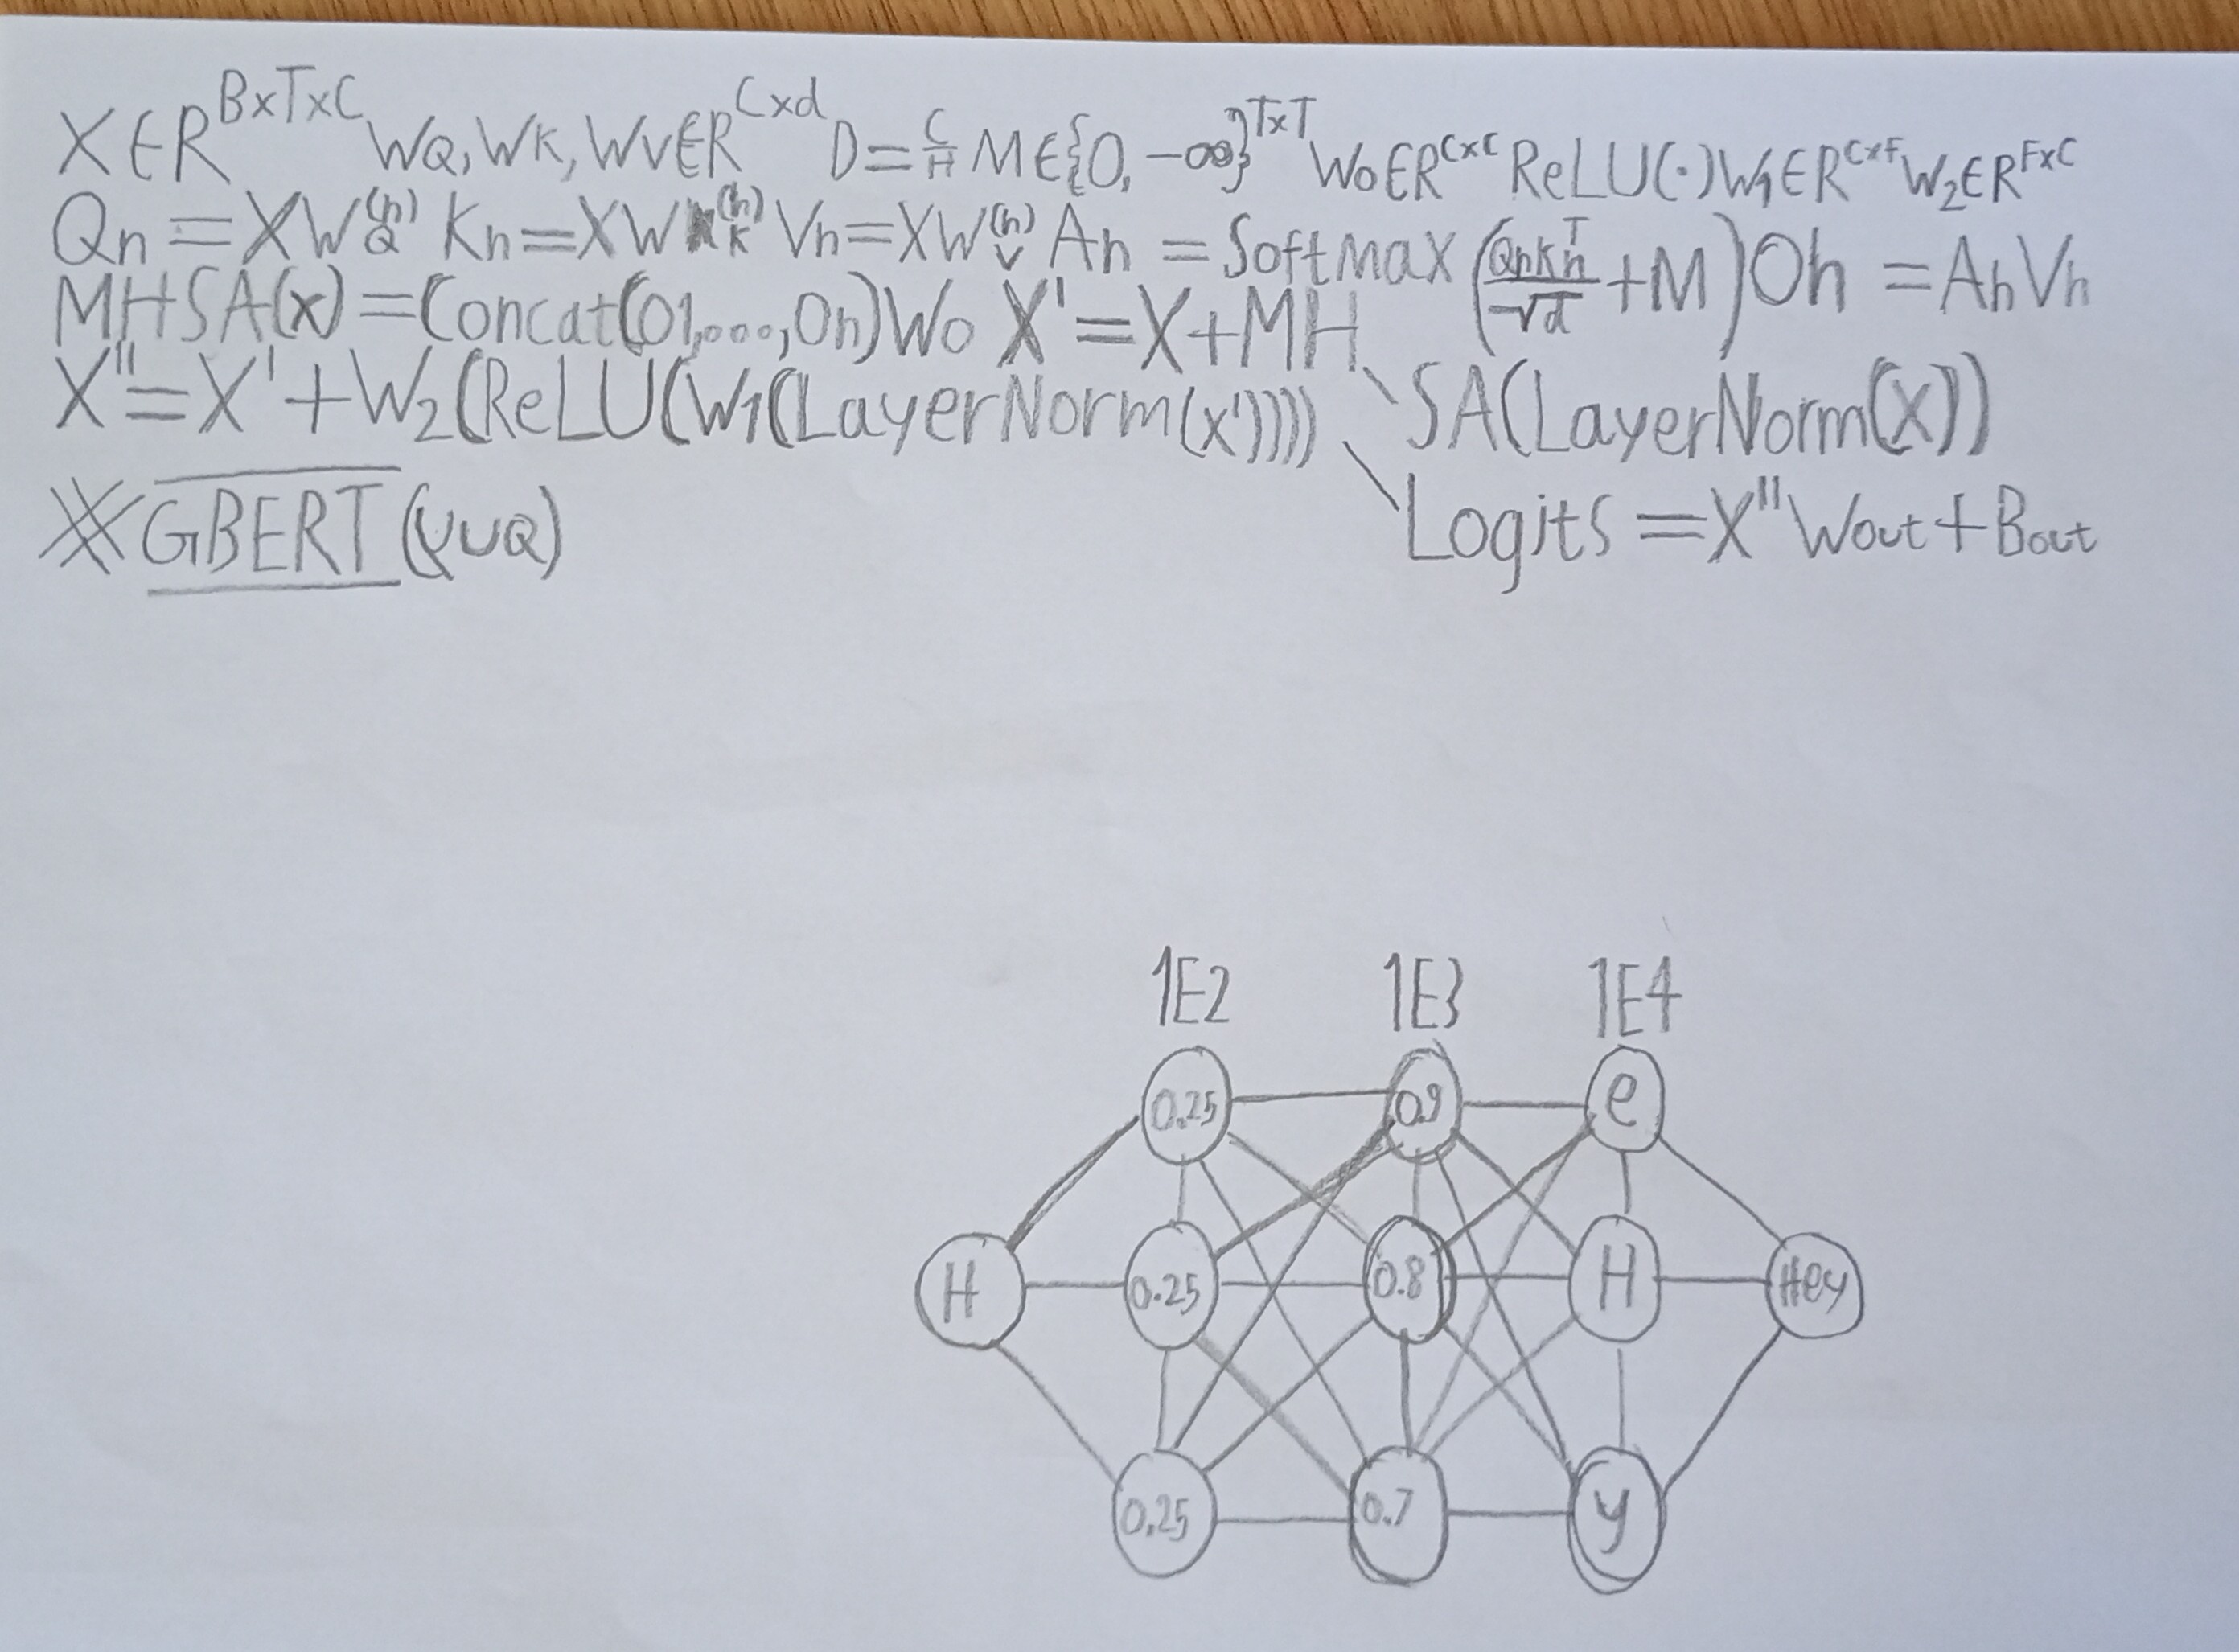 X∈R^{B×T×C} WQ, WK, WV∈R^{C×d} D=C/H M∈{0, -∞}^{T×T} Wo∈R^{C×C} ReLU(·) W1∈R^{C×F} W2∈R^{F×C}
Qn=XW_Q^{(h)} Kn=XW_K^{(h)} Vn=XW_V^{(h)} An=Softmax(QnKn^T/√d+M) Oh=AhVh
MHSA(x)=Concat(O1,...,Oh)Wo X'=X+MH
SA(LayerNorm(X))
X''=X'+W2(ReLU(W1(LayerNorm(x'))))
Logits=X''Wout+Bout
※GBERT(YUQ)
1E2 1E3 1E4
0.25 0.9 e
H 0.25 0.8 H Hey
0.25 0.7 y